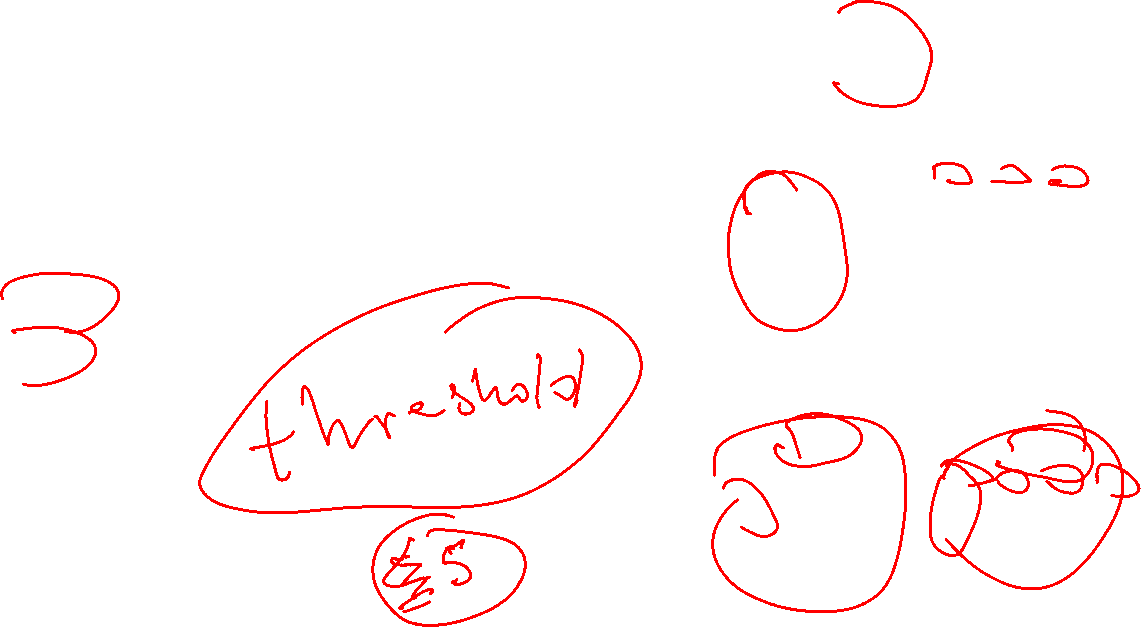 3
threshold
5